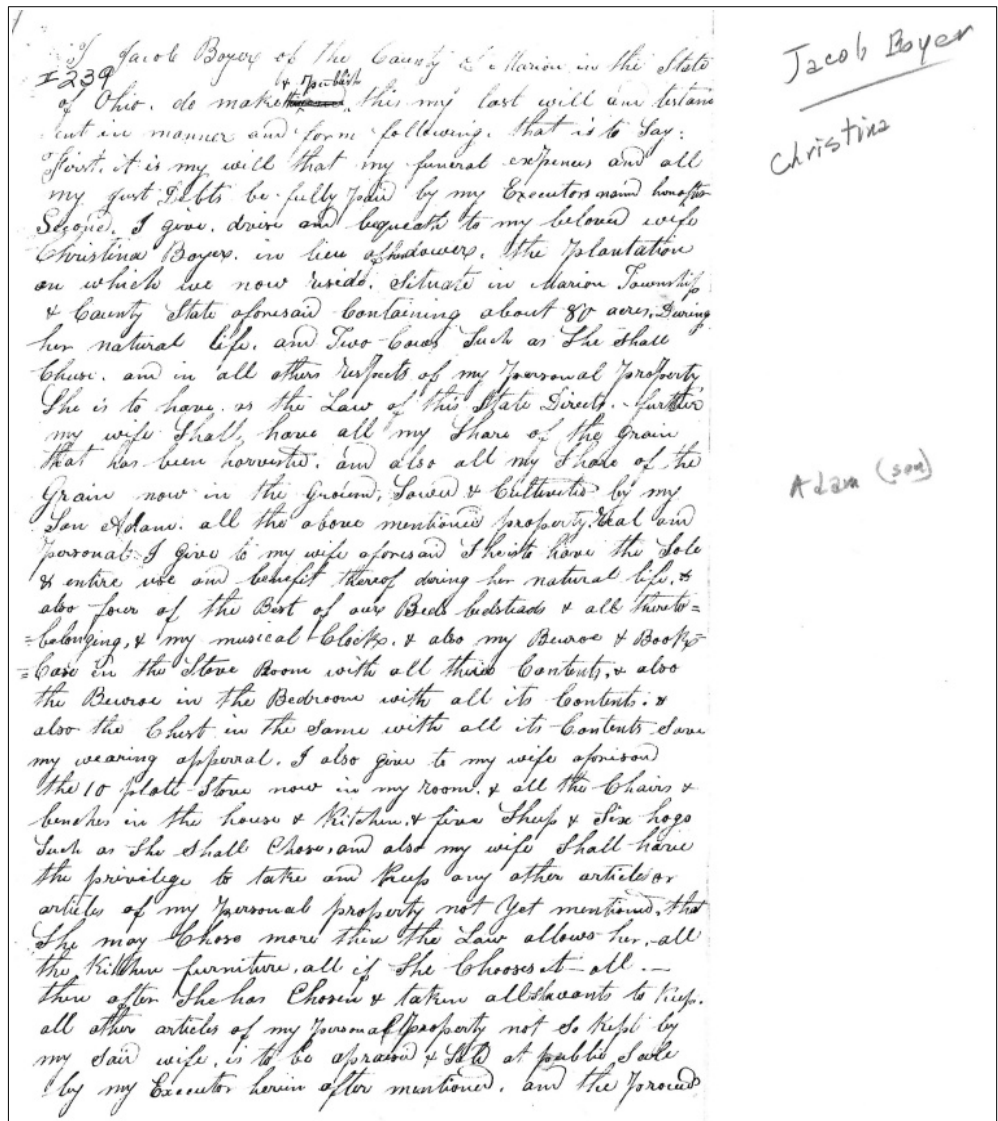 I Jacob Boyer of the County of Marion in the State
I 239
& Publish
of Ohio. do make this my last will and testam
ent in manner and form following. that is to Say:
First. it is my will that my funeral expences and all
my just Debts be fully paid by my Executors
Second. I give. devise and bequeath to my beloved wife
Christina Boyer. in lieu of dower. the plantation
on which we now reside. Situate in Marion Township
& County State aforesaid Containing about 80 acres, During
her natural life. and Two Cows Such as She Shall
Chuse. and in all others respects of my Personal Property
She is to have. as the Law of this State Directs. - further
my wife Shall, have all my Share of the Grain
that has been harvested. and also all my Share of the
Grain now in the Ground, Sowed & Cultivated by my
Son Adam. all the above mentioned property, Real and
personal I give to my wife aforesaid She is to have the Sole
& entire use and benefit thereof during her natural life, &
also four of the Best of our Beds bedsteads & all thereto=
=belonging, & my musical Clock, & also my Buroe & Book=
=Case in the Stove Room with all their Contents, & also
the Buroe in the Bedroom with all its Contents. &
also the Chest in the Same with all its Contents Save
my wearing apperral. I also give to my wife aforesaid
the 10 plate Stove now in my room. & all the Chairs &
benches in the house & Kitchen. & five Sheep & Six hogs
Such as She Shall Chose, and also my wife Shall have
the privilege to take and Keep any other article or
articles of my Personal property not Yet mentioned, that
She may Chose more then the Law allows her, all
the Kitchen furniture. all if She Chooses it - all. -
then after She has Chosen & taken all She wants to Keep.
all other articles of my Personal Property not So Kept by
my Said wife, is to be apraised & Sold at public Sale
by my Executor herein after mentioned. and the Proceeds
Jacob Boyer
Christina
Adam (son)